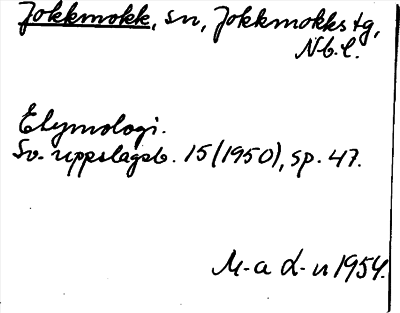 Jokkmokk, sn, Jokkmokks tg,
Nb.l.
Etymologi.
Sv. uppslagsb. 15(1950), sp. 47.
M-a L-n 1954.